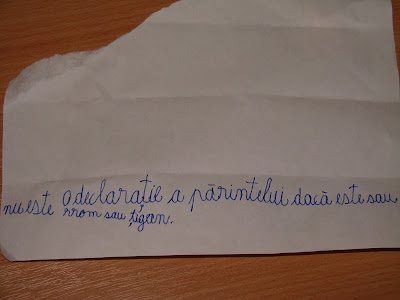 O declarație a părintelui dacă este sau
nu este rrom sau țigan.